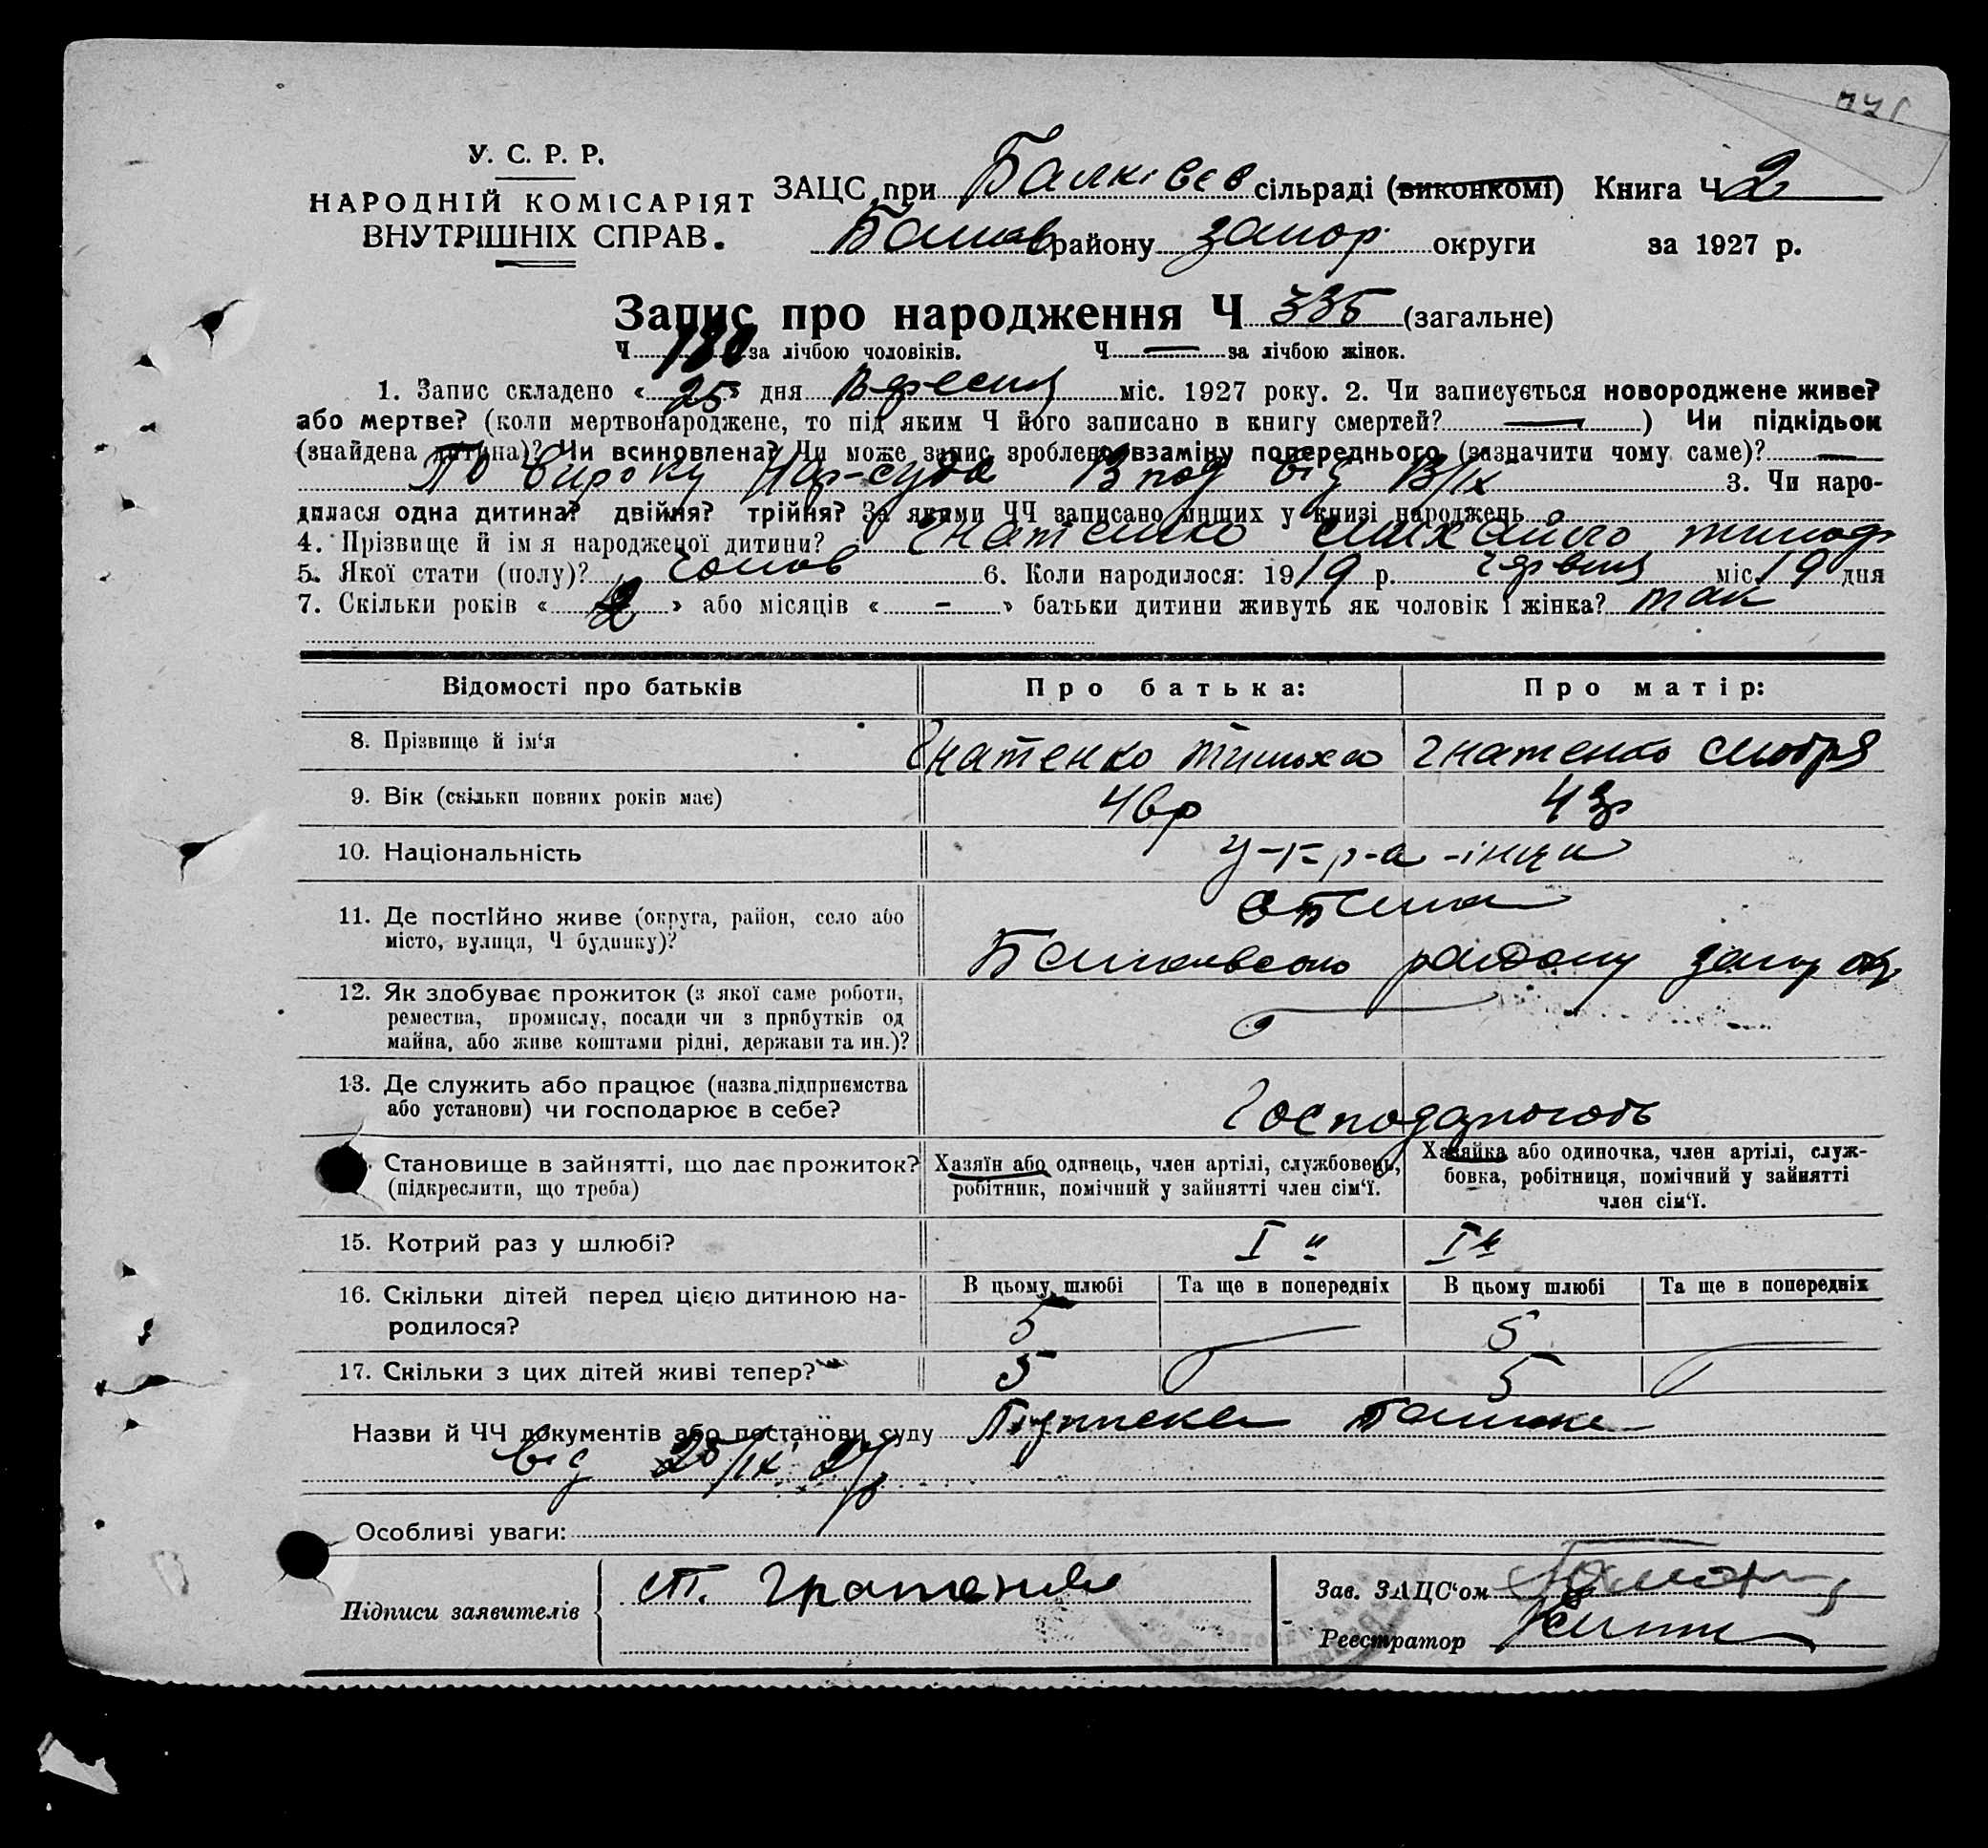 У. С. Р. Р.
НАРОДНІЙ КОМІСАРІЯТ
ВНУТРІШНІХ СПРАВ.
ЗАЦС при Балківсв сільраді (виконкомі) Книга Ч 2
району Запор. округи за 1927 р.
Запис про народження Ч 335 (загальне)
Ч 180 за лічбою чоловіків. Ч — за лічбою жінок.
1. Запис складено « 25 » дня Вересня міс. 1927 року. 2. Чи записується новороджене живе?
або мертве? (коли мертвонароджене, то під яким Ч його записано в книгу смертей? — ) Чи підкідьок
(знайдена дитина)? Чи всиновлена? Чи може запис зроблено взаміну попереднього (зазначити чому саме)? —
По вироку Нар-суда від 13/IX 3. Чи наро-
дилася одна дитина? двійня? трійня? За якими ЧЧ записано инших у книзі народжень
4. Прізвище й ім я народженої дитини? Гнатенко Михайло Тимоф
5. Якої стати (полу)? Чолов 6. Коли народилося: 1919 р. Червня міс. 19 дня
7. Скільки років « 2 » або місяців « - » батьки дитини живуть як чоловік і жінка? так
Відомості про батьків Про батька: Про матір:
8. Прізвище й ім‘я Гнатенко Тимоха Гнатенко
9. Вік (скільки повних років має) 46р 43р
10. Національність у-к-р-а-інци
11. Де постійно живе (округа, район, село або
місто, вулиця, Ч будинку)?
району Запор окр
12. Як здобуває прожиток (з якої саме роботи,
ремества, промислу, посади чи з прибутків од
майна, або живе коштами рідні, держави та ин.)?
13. Де служить або працює (назва підприємства
або установи) чи господарює в себе? Господарюють
Становище в зайнятті, що дає прожиток?
(підкреслити, що треба)
Хазяїн або одинець, член артілі, службовець,
робітник, помічний у зайнятті член сім‘ї.
Хазяйка або одиночка, член артілі, служ-
бовка, робітниця, помічний у зайнятті
член сім‘ї.
15. Котрий раз у шлюбі? I й I й
16. Скільки дітей перед цією дитиною на-
родилося?
В цьому шлюбі Та ще в попередніх В цьому шлюбі Та ще в попередніх
5 — 5 —
17. Скільки з цих дітей живі тепер? 5 — 5 —
Назви й ЧЧ документів або постанови суду
від 25/IX 27р
Особливі уваги:
Підписи заявителів
Зав. ЗАЦС‘ом
Реєстратор